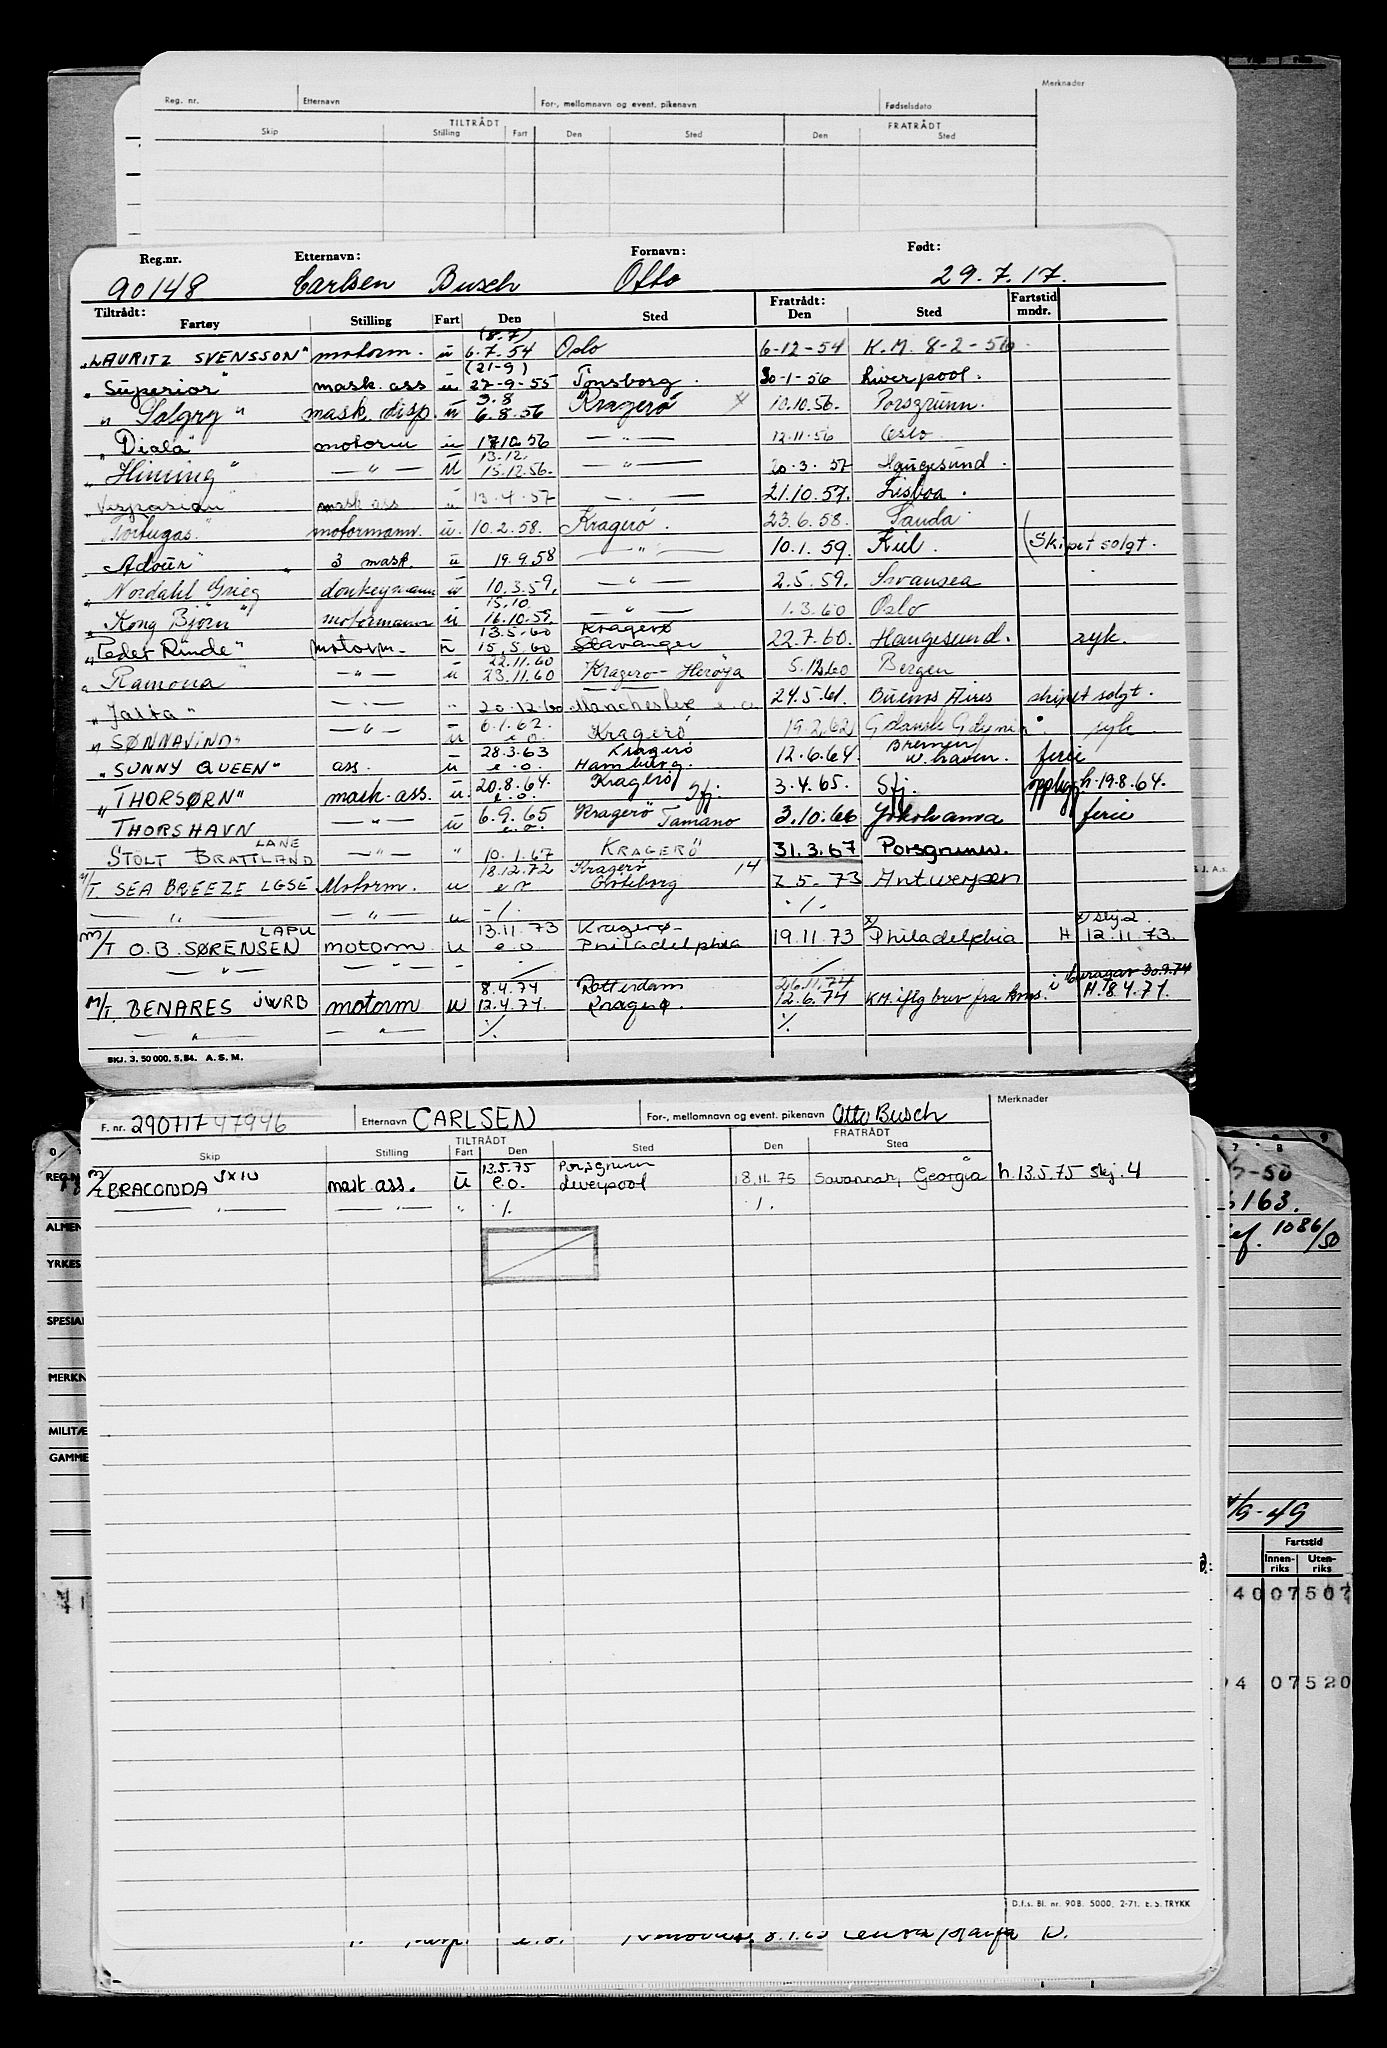 Merknader
Reg. nr. Etternavn For-, mellomnavn og event. pikenavn Fødselsdato
TILTRÅDT FRATRÅDT
Skip Stilling Fart Den Sted Den Sted
Reg.nr. Etternavn: Fornavn: Født:
90148 Carlsen Busch Otto 29.7.17.
Tiltrådt: Fratrådt: Fartstid
Fartøy Stilling Fart Den Sted Den Sted mndr.
(8.7)
"LAURITZ SVENSSON" motorm. u 6.7.54 Oslo 6-12-54 K.M. 8-2-56
(21-9)
"Superior" mask. ass u 27-9-55 Tønsberg. 30-1-56 Liverpool.
3.8
"Solgry" mask. disp. u 6.8.56 Kragerø x 10.10.56. Porsgrunn.
"Diala" motorm u 17.10.56 — " — 12.11.56 Oslo
13.12.
"Himing" — " — u 15.12.56. — " — 20.3.57 Haugesund.
"Vespasian" mask ass u 13.4.57 — " — 21.10.57. Lisboa.
"Tortugas." motormann. u. 10.2.58. Kragerø. 23.6.58. Sauda
"Adour" 3 mask. u 19.9.58 — " — 10.1.59. Kiel. (Skipet solgt.
"Nordahl Grieg donkeymann u 10.3.59. — " — 2.5.59. Swansea
15.10.
"Kong Bjørn" motormann u 16.10.59. — " — 1.3.60 Oslo
13.5.60 Kragerø
"Peder Rinde" motorm. u 15.5.60 Stavanger 22.7.60. Haugesund. syk.
22.11.60
"Ramona — " — u 23.11.60 Kragerø - Herøya 5.12.60 Bergen
"Jalta" — . — " 20.12.60 Manchester e.o. 24.5.61. Buenos Aires skipet solgt.
6.1.62.
"SØNNAVIND" — " — u e.o. Kragerø 19.2.62 Gdansk Gdynia. syk
28.3.63 Kragerø Bremen
"SUNNY QUEEN" ass. u e.o. Hamburg. 12.6.64. w. haven. ferie
"THORSØRN" mask. ass. u. 20.8.64. e.o. Kragerø Sfj. 3.4.65. Sfj. opplegg h. 19.8.64.
THORSHAVN — " — u 6.9.65 e.o. Kragerø Tamano 3.10.66 Yokohama ferie
LANE
STOLT BRATTLAND — " — " 10.1.67 KRAGERØ 31.3.67 Porsgrunn.
18.12.72 Kragerø 14
M/T. SEA BREEZE LGSE Motorm. u e o Gøteborg 7.5.73 Antwerpen
— " — — " — u -/. -/.
LAPU 13.11.73 Kragerø- x x) skj 2
M/T O.B. SØRENSEN motorm u e.o. Philadelphia 19.11.73 Philadelphia H 12.11.73.
— " — — " — - ./. ./.
8.4.74 Rotterdam 26.11.74 30.9.74
M/T. BENARES JWRB motorm u 12.4.74. Kragerø. 12.6.74 KM. iflg brev fra H. 8.4.74.
— " — ./. ./.
SKJ. 3. 50 000. 5. 54. A. S. M.
F. nr. 290717 47946 Etternavn CARLSEN For-, mellomnavn og event. pikenavn Otto Busch Merknader
TILTRÅDT FRATRÅDT
Skip Stilling Fart Den Sted Den Sted
JXIU 13.5.75 Porsgrunn
M/T BRACONDA mask. ass. u e.o. Liverpool 18.11.75 Savannah, Georgia h. 13.5.75 skj. 4
— " — — " — " ./. ./.
D.f.s. Bl. nr. 90B. 5000. 2-71. E.S. TRYKK
e.o. 8.1.60
REG.N
ALMEN
YRKES
SPESIAL
MERKN
MILITÆ
GAMME
7 8 9
-50
163.
ef. 1086/50
/9-49
Fartstid
Innen-riks Uten-riks
40 07507
94 07520